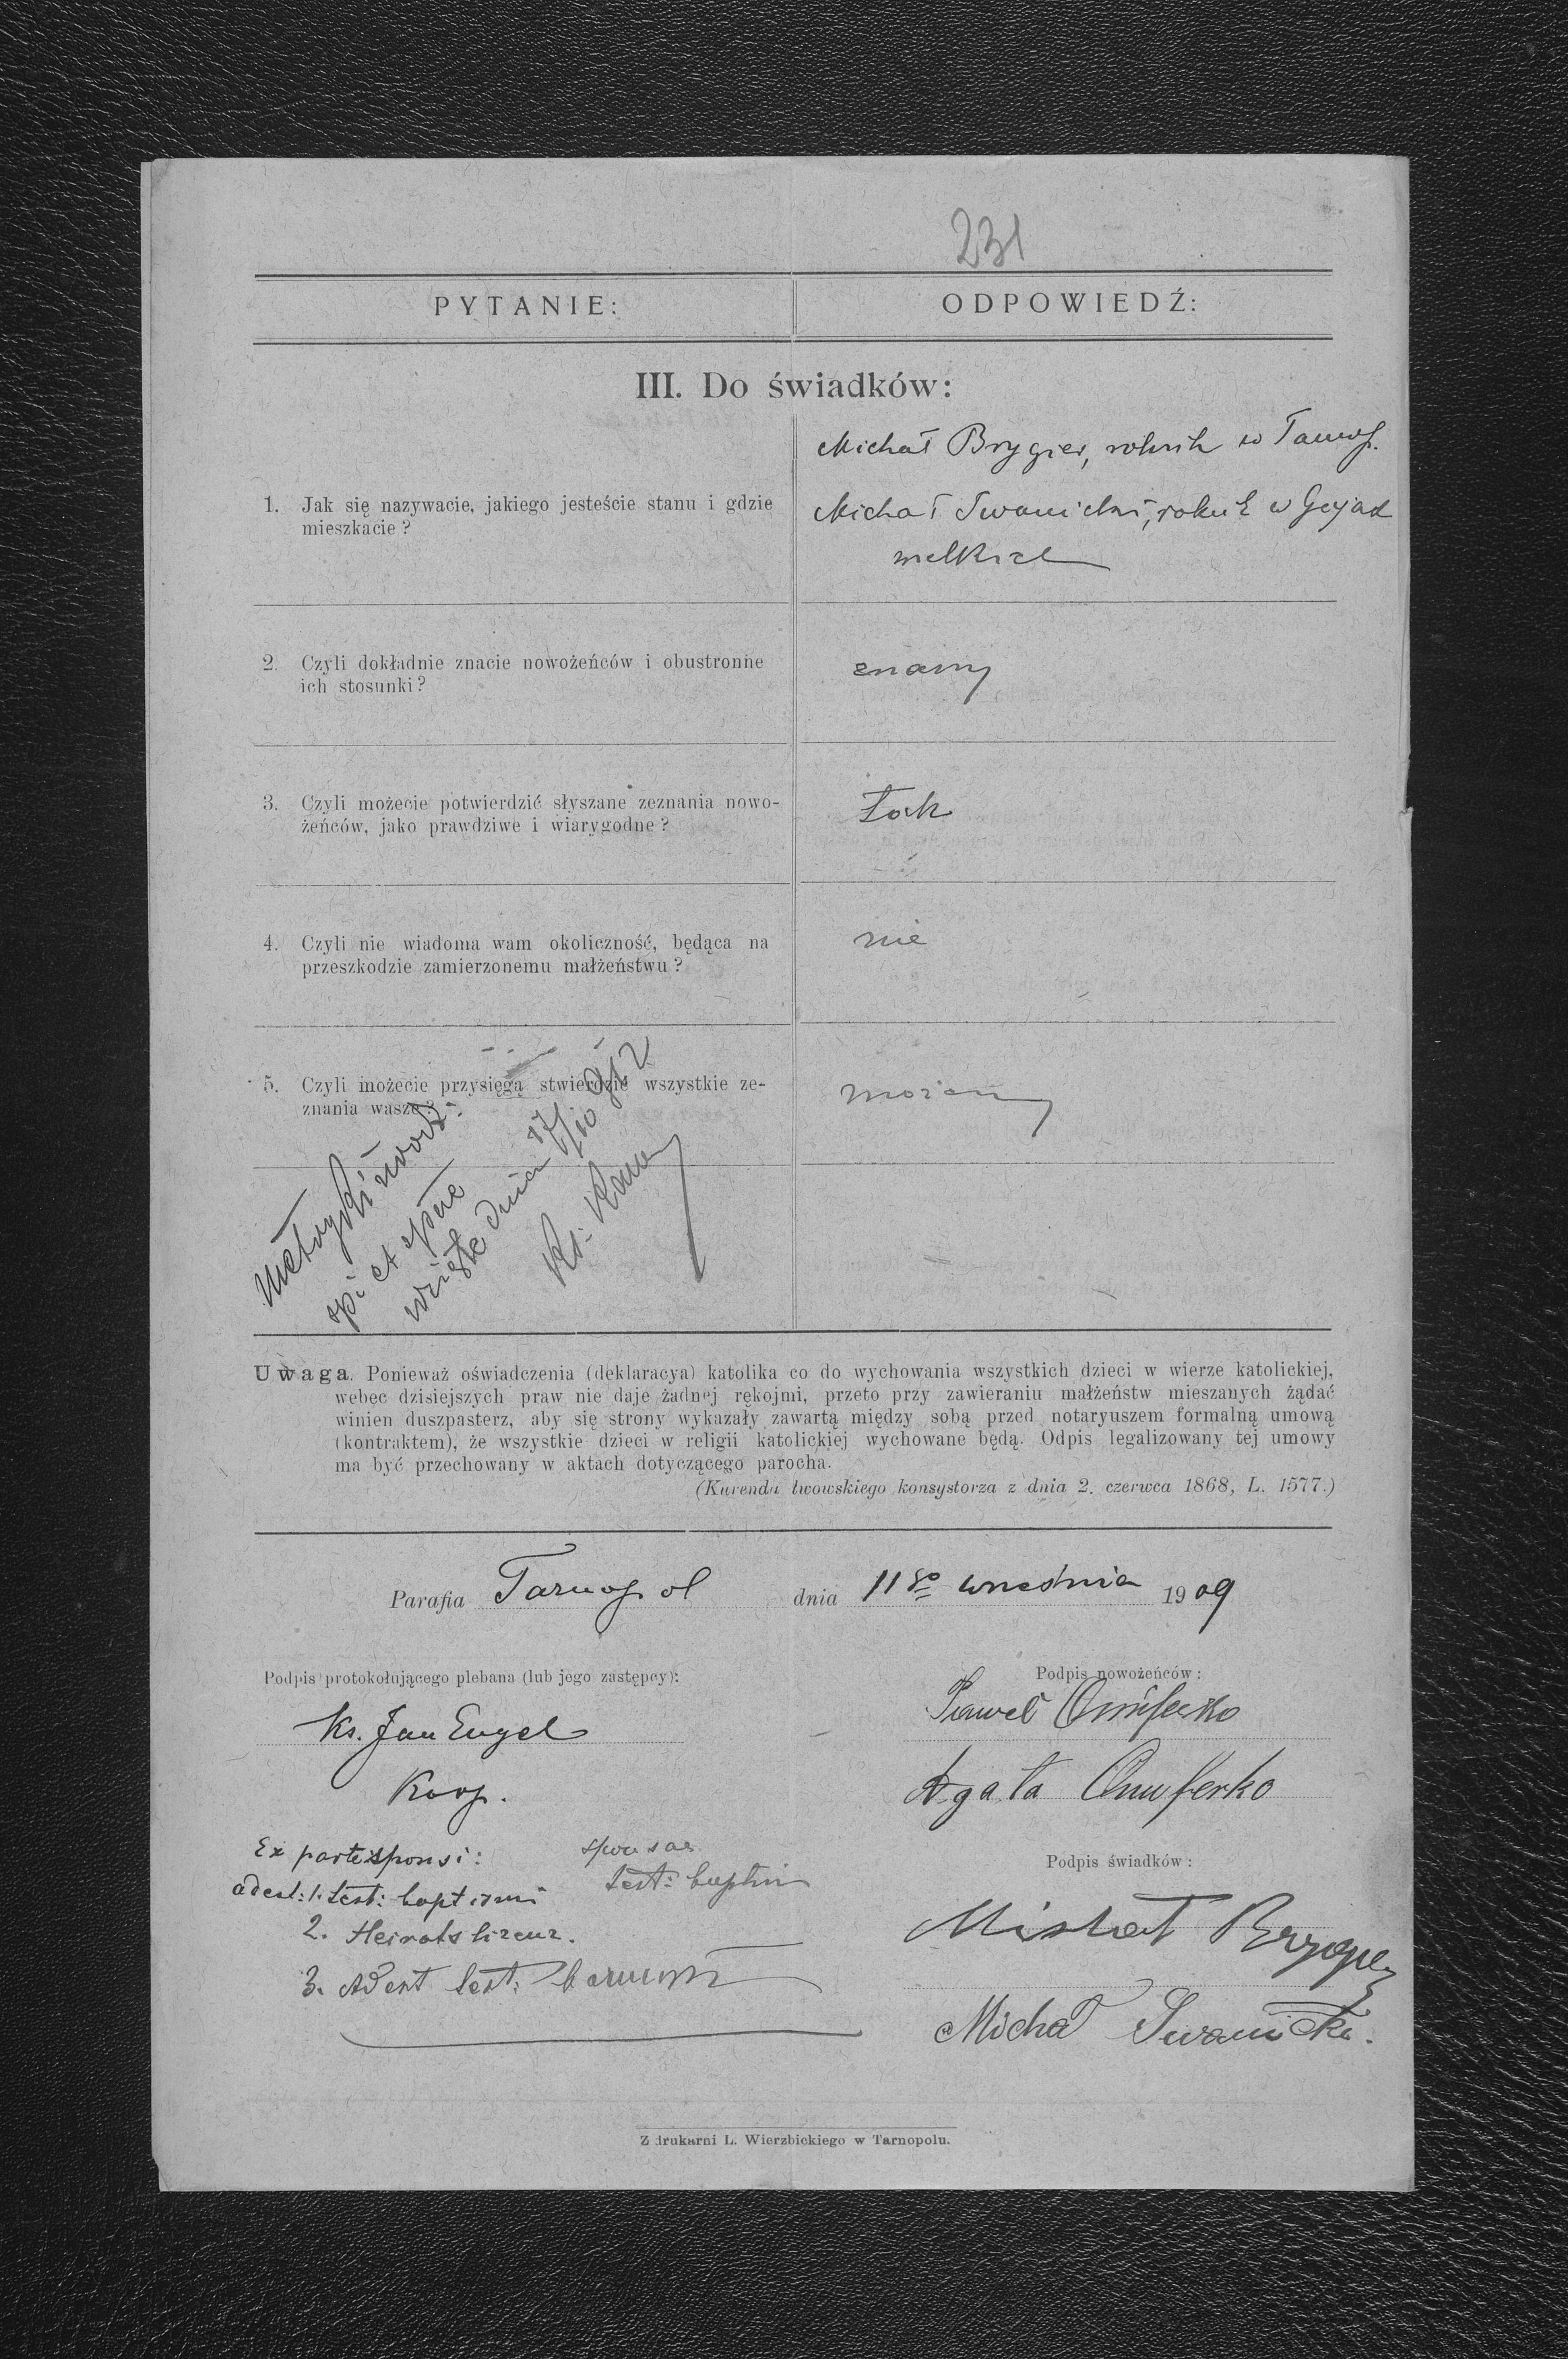 231
PYTANIE:
ODPOWIEDŹ:
III. Do świadków:
1. Jak się nazywacie, jakiego jesteście stanu i gdzie
mieszkacie?
Michał Brygier, rolnik w Tarnop.
Michał Iwanicki, rolnik w Gajach
wielkich
2. Czyli dokładnie znacie nowożeńców i obustronne
ich stosunki?
znamy
3. Czyli możecie potwierdzić słyszane zeznania nowo-
żeńców, jako prawdziwe i wiarygodne?
Tak
4. Czyli nie wiadoma wam okoliczność, będąca na
przeszkodzie zamierzonemu małżeństwu?
nie
5. Czyli możecie przysięgą stwierdzić wszystkie ze-
znania wasze?
możemy
Metryki
spi et spae
wzięte dnia 17/10 912
Ks.
Uwaga. Ponieważ oświadczenia (deklaracya) katolika co do wychowania wszystkich dzieci w wierze katolickiej,
wobec dzisiejszych praw nie daje żadnej rękojmi, przeto przy zawieraniu małżeństw mieszanych żądać
winien duszpasterz, aby się strony wykazały zawartą między sobą przed notaryuszem formalną umową
(kontraktem), że wszystkie dzieci w religii katolickiej wychowane będą. Odpis legalizowany tej umowy
ma być przechowany w aktach dotyczącego parocha.
(Kurenda lwowskiego konsystorza z dnia 2. czerwca 1868, L. 1577.)
Parafia Tarnopol dnia 11go września 1909
Podpis protokołującego plebana (lub jego zastępcy):
Ks. Jan Engel
Koop.
Podpis nowożeńców:
Paweł Onuferko
Agata Onuferko
Ex parte sponsi:
adest: 1. test: baptismi
2. Heirats lizenz.
3. Adest test:
sponsae
test: baptismi
Podpis świadków:
Michał
Michał Iwanicki.
Z drukarni L. Wierzbickiego w Tarnopolu.